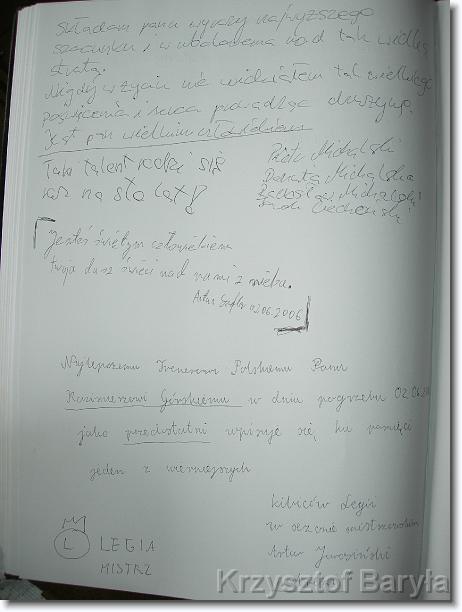 Składam panu wyrazy najwyższego
szacunku i uwielbienia nad tak wielką
stratą.
Nigdy w życiu nie widziałem tak wielkiego
poświęcenia i serca prowadząc drużynę.
Jest pan wielkim człowiekiem
Taki talent rodzi się
raz na sto lat!
Piotr Michalski
Danuta Michalska
Radosław Michalski
Jesteś świętym człowiekiem
twoja dusz świeci nad nami z nieba.
Artur 02.06.2006
Najlepszemu Trenerowi Polskiemu Panu
Kazimierzowi Górskiemu w dniu pogrzebu 02.06.
jako przedostatni wpisuje się ku pamięci
jeden z wierniejszych
kibiców Legii
w sezonie mistrzowskim
Artur
L LEGIA
MISTRZ
Krzysztof Baryła